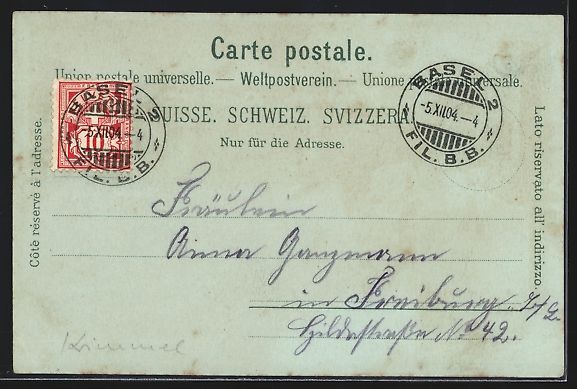 Carte postale.
Union postale universelle. — Weltpostverein. — Unione postale universale.
SUISSE. SCHWEIZ. SVIZZERA.
Nur für die Adresse.
Côté réservé à l'adresse.
Lato riservato all' indirizzo.
BASEL 2
-5.XII.04.-4
FIL. B.B.
BASEL 2
-5.XII.04.-4
FIL. B.B.
10
Fräulein
Anna Ganzmann
in Freiburg i/B.
Hildastraße No 42.
Krimmel